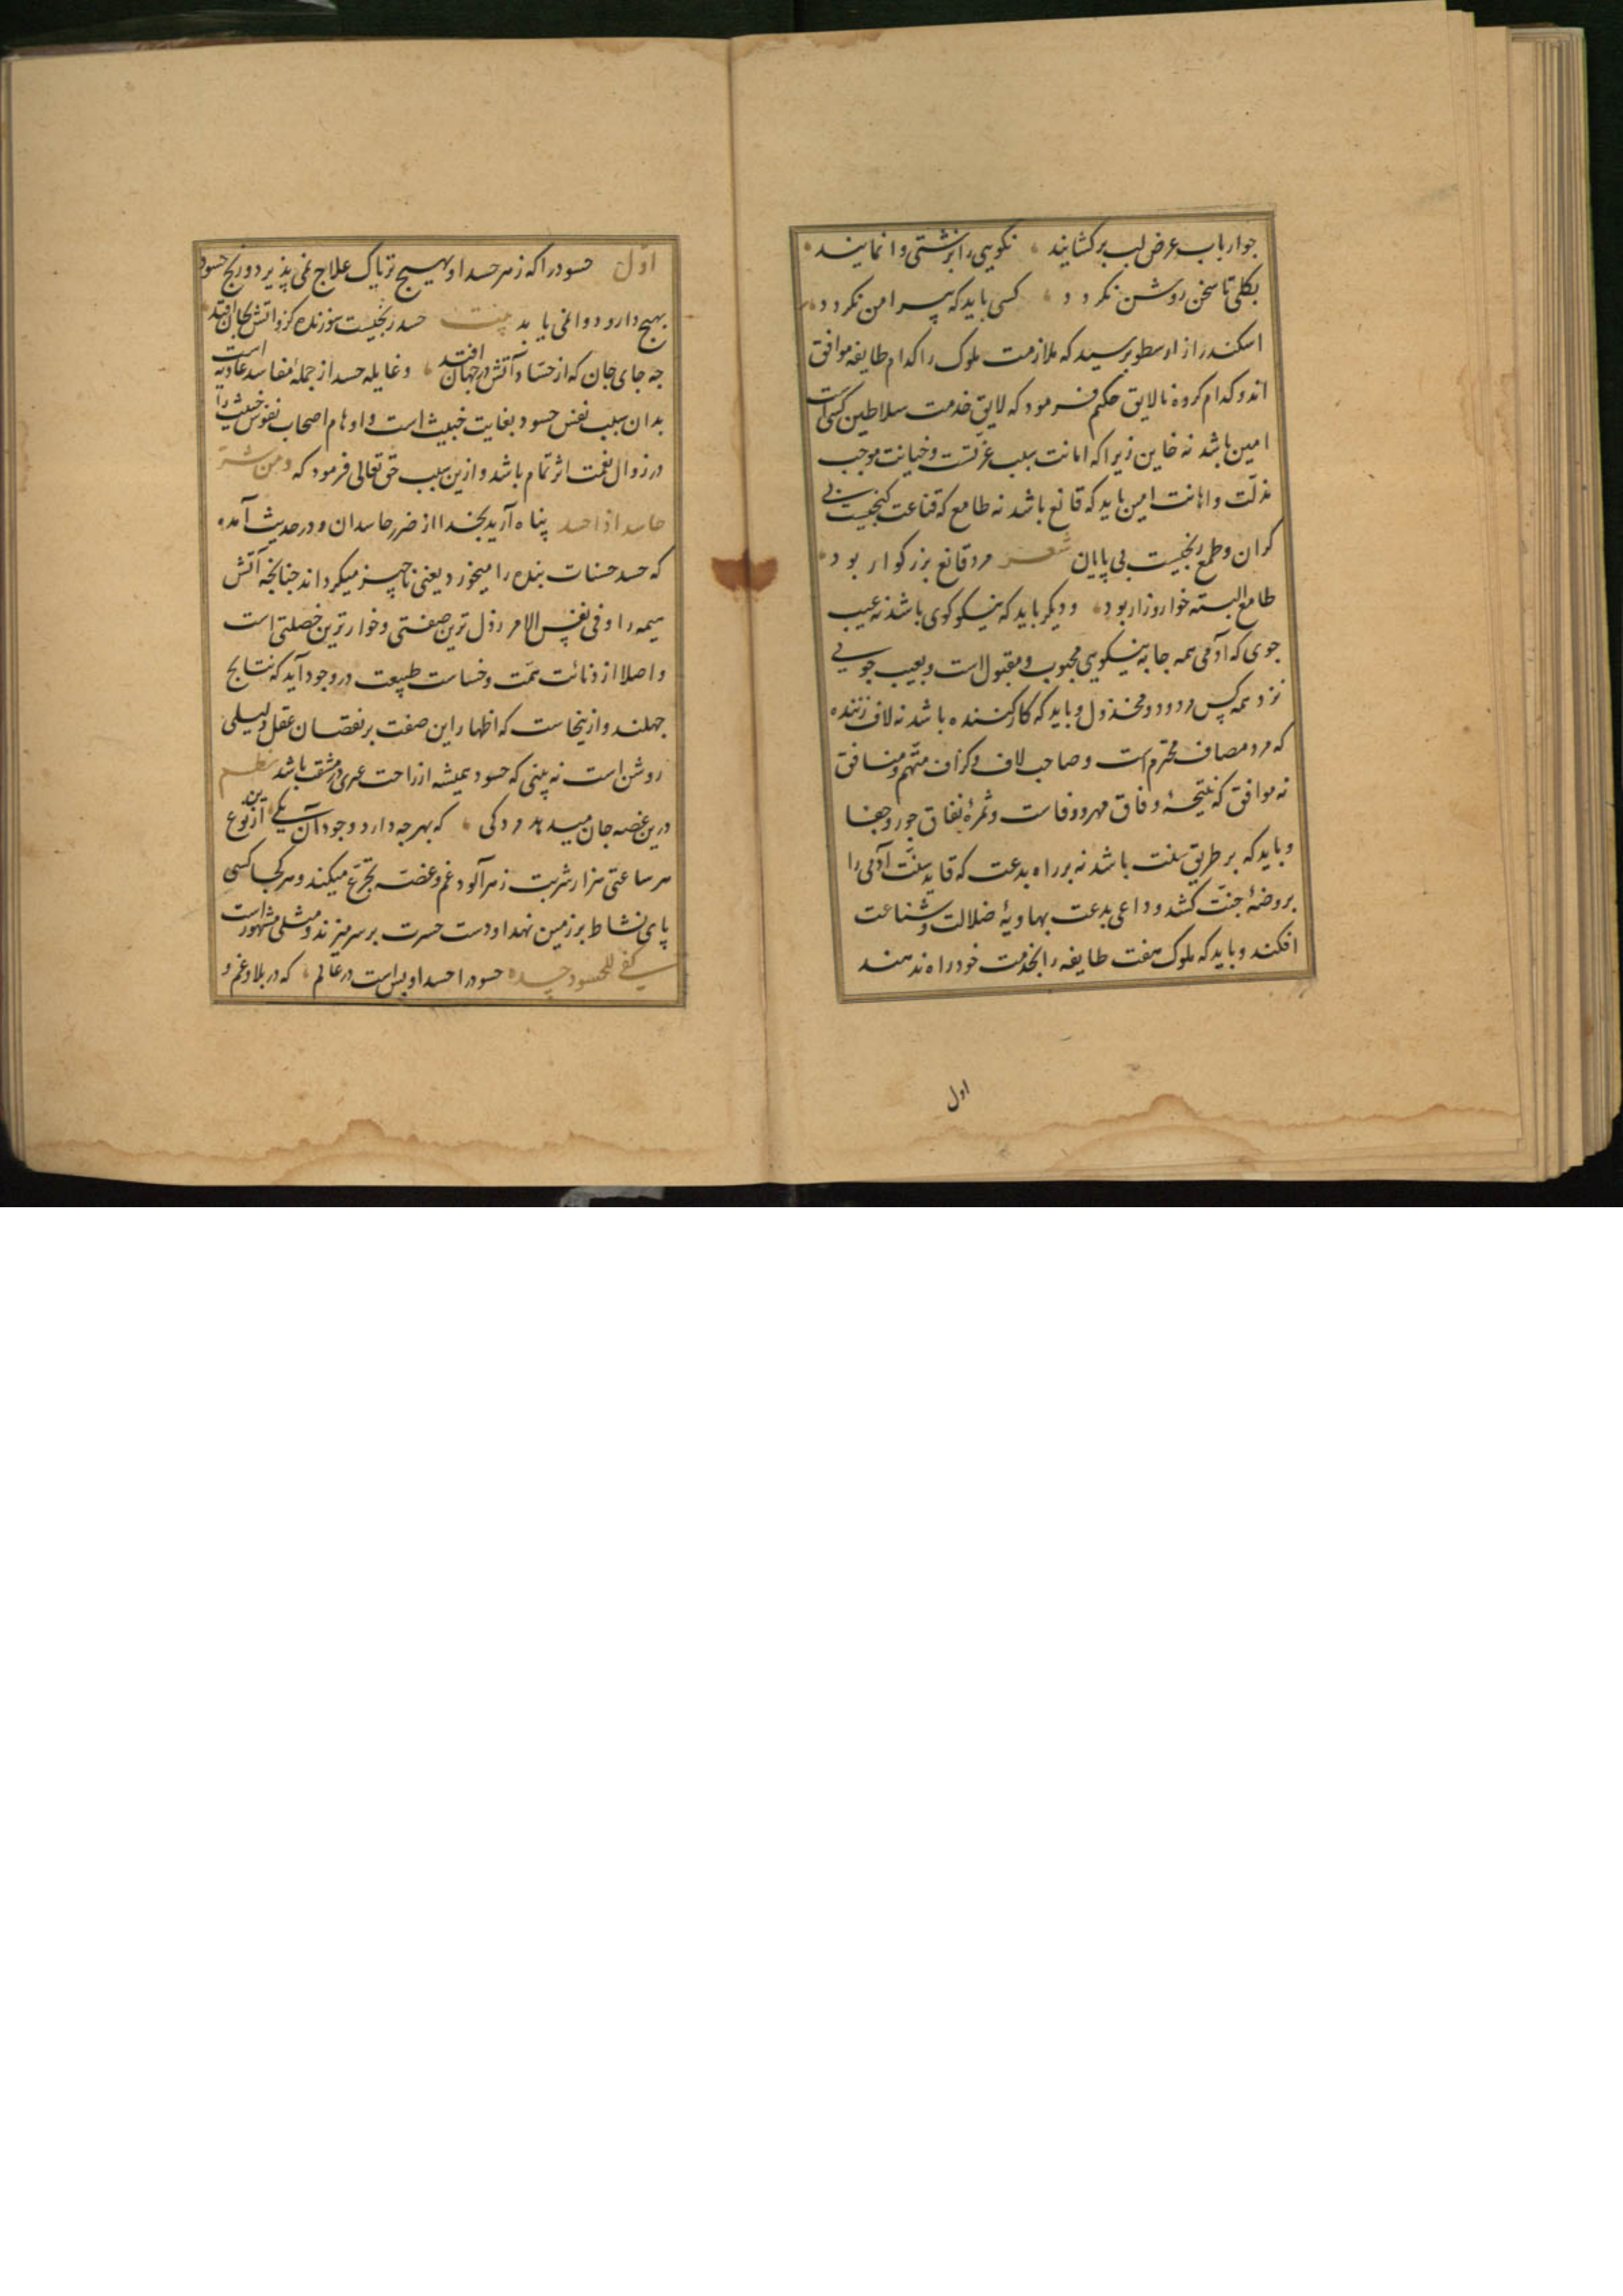 جو ارباب غرض لب برکشایند نکویی را بزشتی وا نمایند
بکلی تا سخن روشن نکردد کسی باید که پیرامن نکردد
اسکندر از ارسطو پرسید که ملازمت ملوک را کدام طایفه موافق
اند و کدام کروه نالایق حکیم فرمود که لایق خدمت سلاطین کسی است
امین باشد نه خاین زیرا که امانت سبب عزتست و خیانت موجب
مذلت و اهانت امین باید که قانع باشد نه طامع که قناعت کنجیست بی
کران و طمع رنجیست بی پایان شعر مرد قانع بزرکوار بود
طامع البته خوار و زار بود و دیکر باید که نیکو کوی باشد نه عیب
جوی که آدمی همه جا به نیکویی محبوب و مقبول است و بعیب جویی
نزد همه کس مردود و مخذول و باید که کار کننده باشد نه لاف زننده
که مرد مصاف محترم است و صاحب لاف و کزاف متهم و منافق
نه موافق که نتیجهٔ وفاق مهر و وفاست و ثمرهٔ نفاق جور و جفا
و باید که بر طریق سنت باشد نه بر راه بدعت که قاید سنت آدمی را
بروضهٔ جنت کشد و داعی بدعت بهاویهٔ ضلالت و شناعت
افکند و باید که ملوک هفت طایفه را بخدمت خود راه ندهند
اول
اول حسود را که زهر حسد او بهیچ تریاک علاج نمی پذیرد و رنج حسود
بهیچ دارو دوا نمی یابد بیت حسد رنجیست سوزنده کزو آتش بجان افتد
جه جای جان که از حساد آتش در جهان افتد و غایله حسد از جملهٔ مفاسد عادیه است
بدان سبب نفس حسود بغایت خبیث است و اوهام اصحاب نفوس خبیثه را
در زوال نعمت اثر تمام باشد و ازین سبب حق تعالی فرمود که و من شر
حاسد اذا حسد پناه آرید بخدا از ضرر حاسدان و در حدیث آمده
که حسد حسنات بنده را میخورد یعنی ناچیز میکرداند جنانجه آتش
هیمه را و فی نفس الامر رذل ترین صفتی و خوارترین خصلتی است
و اصلا از دنائت همت و خساست طبیعت در وجود آید که نتایج
جهلند و ازینجاست که اظهار این صفت بر نقصان عقل دلیلی
روشن است نه بینی که حسود همیشه از راحت غیری در مشقت باشد نظم
درین غصه جان میدهد مردکی که بهر جه دارد وجود آن یکی ازین نوع
هر ساعتی هزار شربت زهرآلود غم و غصه تجرع میکند و هر کجا کسی
پای نشاط بر زمین نهد او دست حسرت بر سر میزند و مثلی مشهور است
کفی للحسود حسده حسود را حسد او بس است در عالم که در بلا و غم و